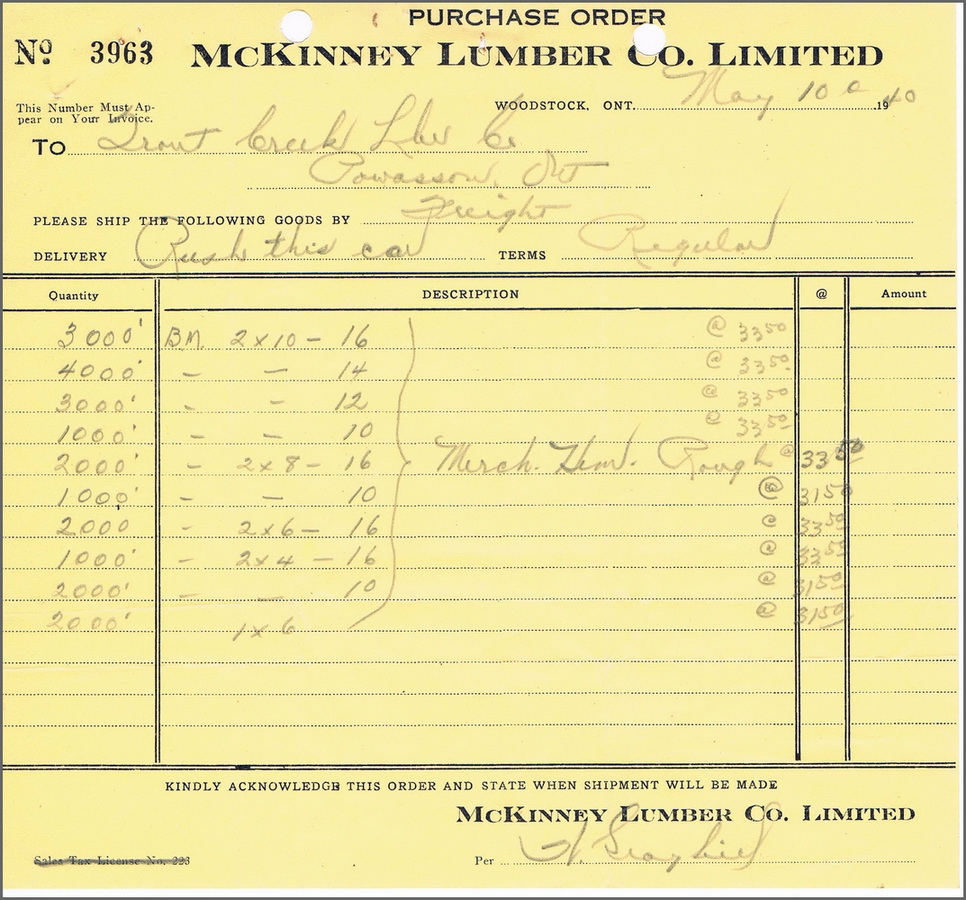 PURCHASE ORDER
Nº 3963 McKINNEY LUMBER CO. LIMITED
This Number Must Ap-
pear on Your Invoice.
WOODSTOCK, ONT. May 10 1940
TO Trout Creek Lbr Co
Powasson, Ont
PLEASE SHIP THE FOLLOWING GOODS BY Freight
DELIVERY Rush this car TERMS Regular
Quantity DESCRIPTION @ Amount
3000' BM. 2x10 - 16 @ 33 50
4000' - - 14 @ 33 50
3000' - - 12 @ 33 50
1000' - - 10 @ 33 50
2000' - 2x8 - 16 Merch. Hem. Rough @ 33 50
1000' - - 10 @ 31 50
2000 - 2x6 - 16 @ 33 50
1000' - 2x4 - 16 @ 33 50
2000' - - 10 @ 31 50
2000' 1x6 @ 31 50
KINDLY ACKNOWLEDGE THIS ORDER AND STATE WHEN SHIPMENT WILL BE MADE
McKINNEY LUMBER CO. LIMITED
Sales Tax License No. 223
Per